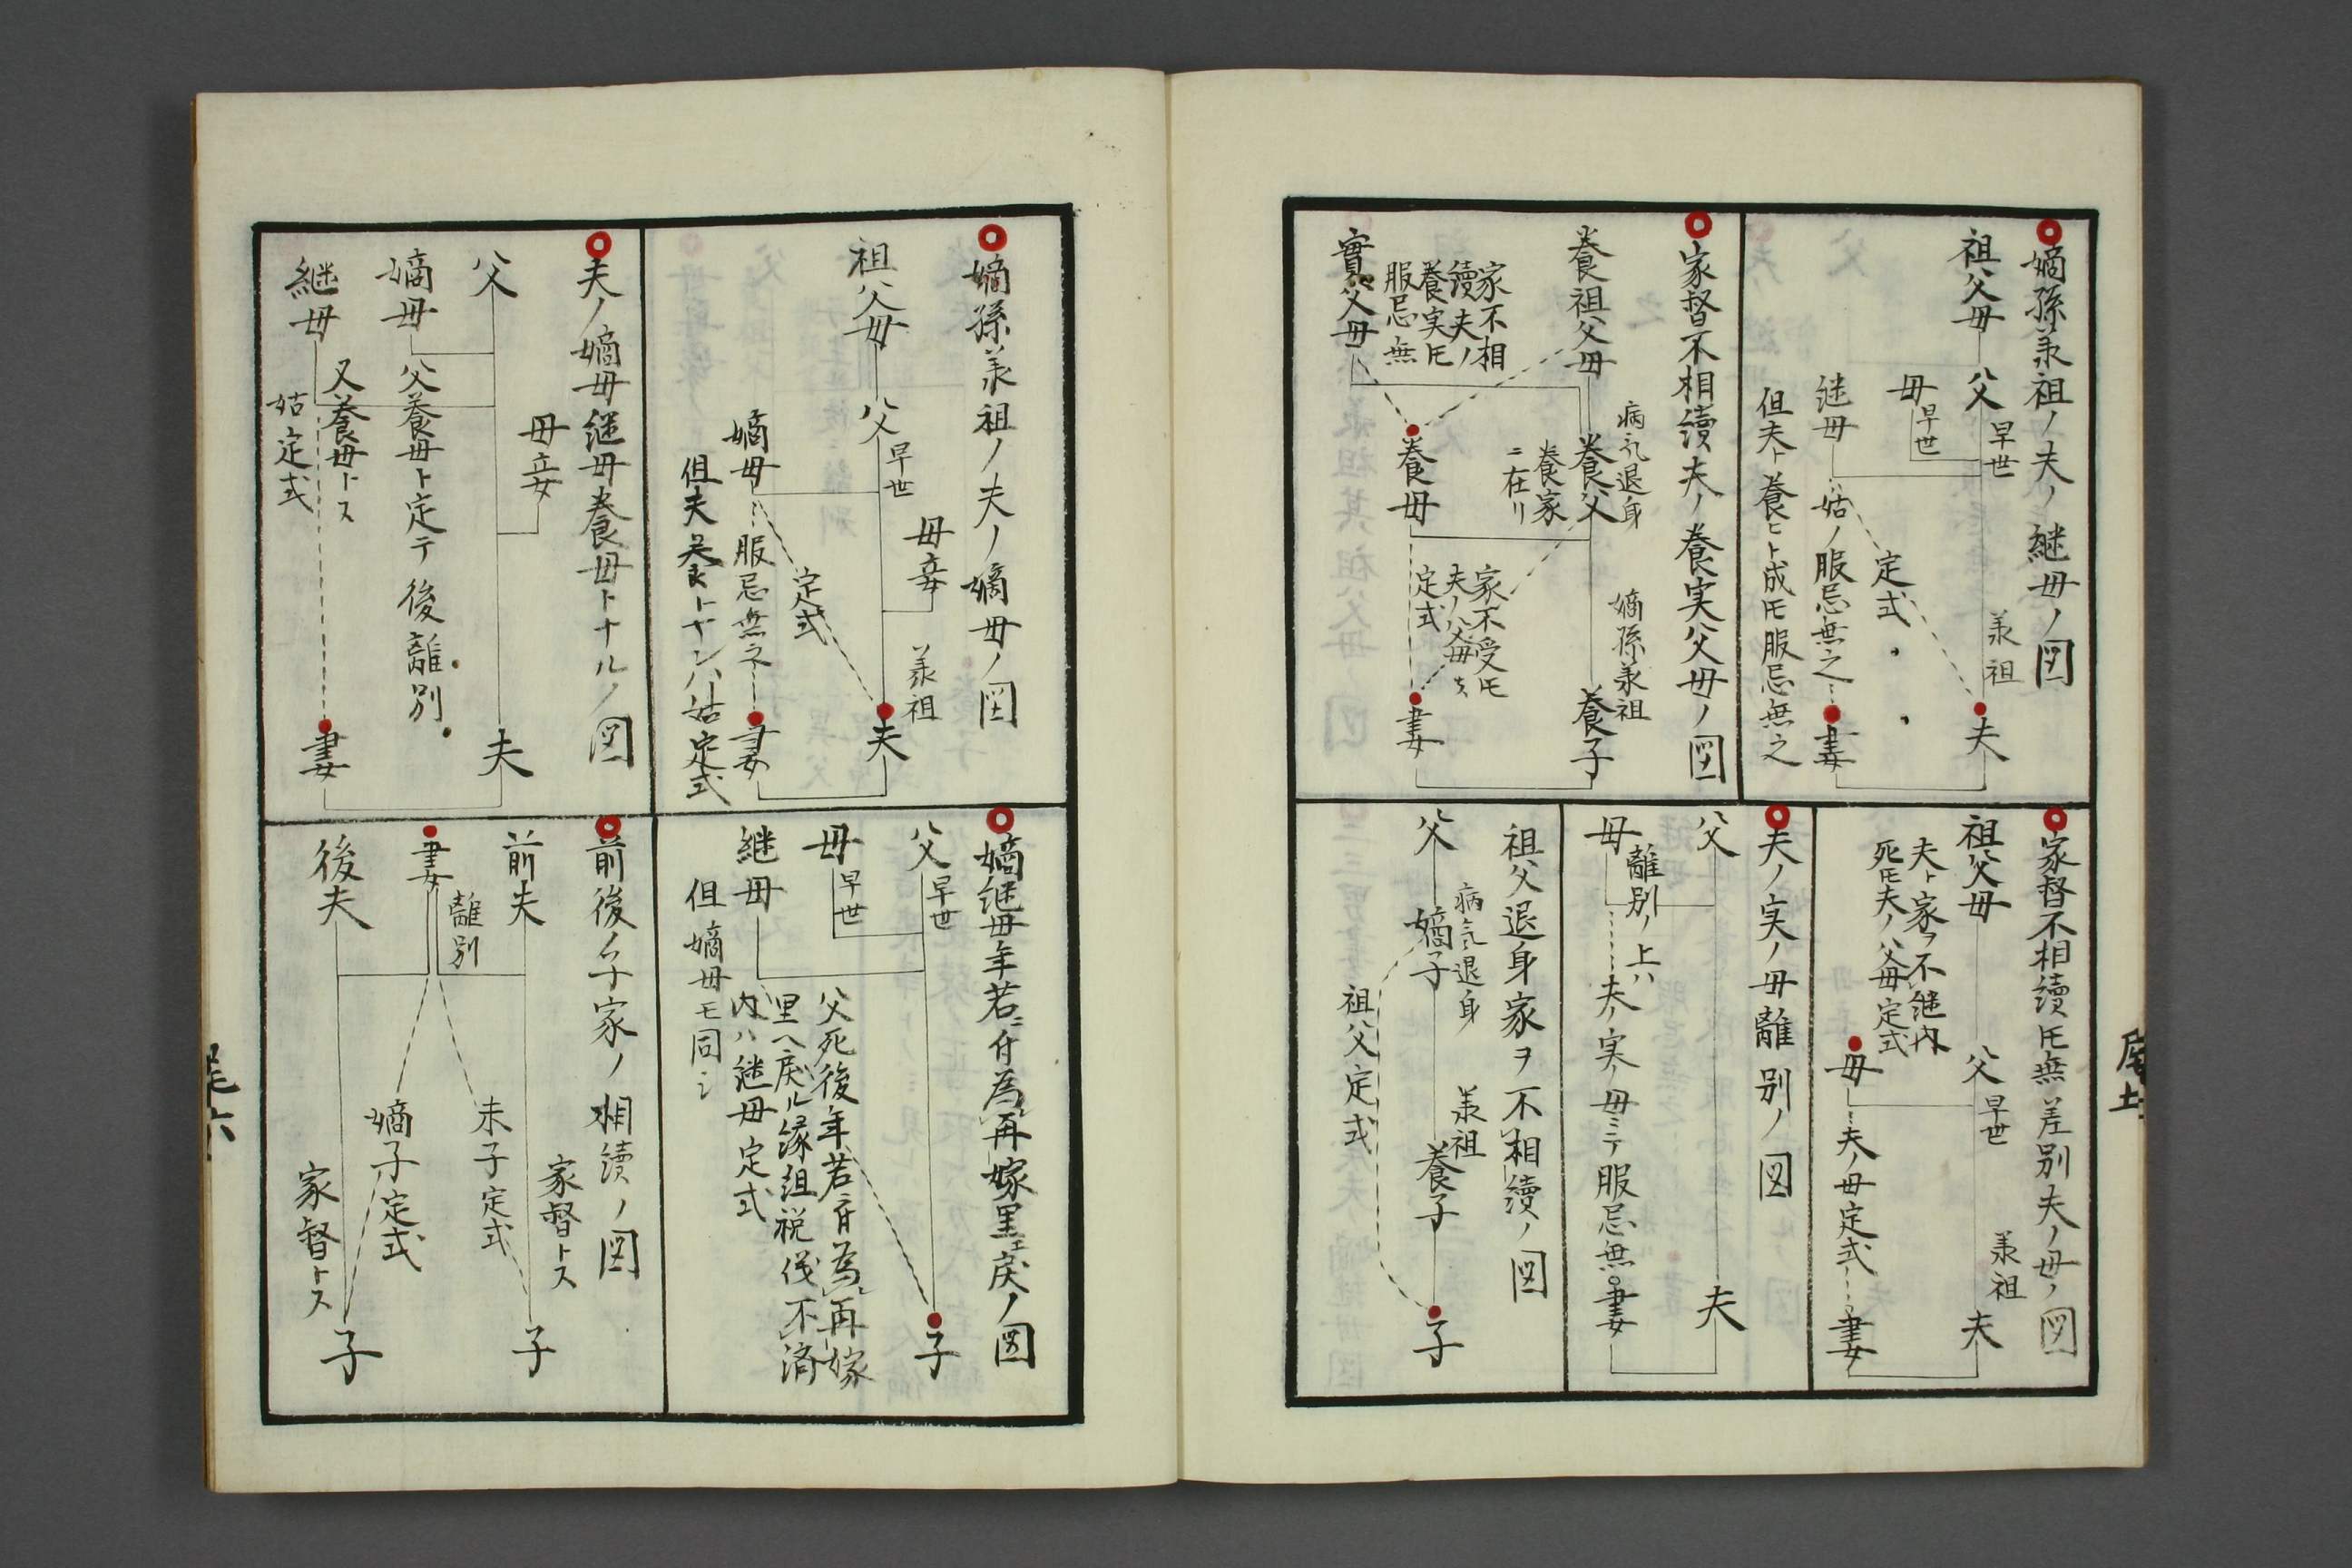 嫡孫承祖ノ夫ノ継母ノ図
祖父母
父
早世
母
早世
継母
承祖
夫
定式
姑ノ服忌無之
妻
但夫ト養ヒト成𪜈服忌無之
家督不相續夫ノ養実父母ノ図
養祖父母
病氣退身
養父
養家
ニ在リ
嫡孫承祖
養子
家不相
續夫ノ
養実𪜈
服忌無
實父母
養母
家不受𪜈
夫ノ父母ハ
定式
妻
家督不相續𪜈無差別夫ノ母ノ図
祖父母
父
早世
承祖
夫
夫ト家ヲ不継内
死𪜈夫ノ父母定式
母
夫ノ母定式
妻
夫ノ実ノ母離別ノ図
父
夫
母
離別ノ上ハ
夫ノ実ノ母ニテ服忌無
妻
祖父退身家ヲ不相續ノ図
父
病氣退身
嫡子
承祖
養子
祖父定式
子
嫡孫承祖ノ夫ノ嫡母ノ図
祖父母
父
早世
母妾
承祖
夫
嫡母
定式
服忌無之
妻
但夫養トナシハ姑定式
夫ノ嫡母継母養母トナルノ図
母妾
父
夫
嫡母
父養母ト定テ後離別
継母
又養母トス
姑定式
妻
嫡継母年若ニ付為再嫁里エ戻ノ図
父
早世
母
早世
継母
子
父死後年若ニ付為再嫁
里ヘ戻ル縁組税伐不済
内ハ継母定式
但嫡母モ同シ
前後ノ子家ノ相續ノ図
前夫
家督トス
子
妻
離別
末子定式
嫡子定式
後夫
家督トス
子
尾六